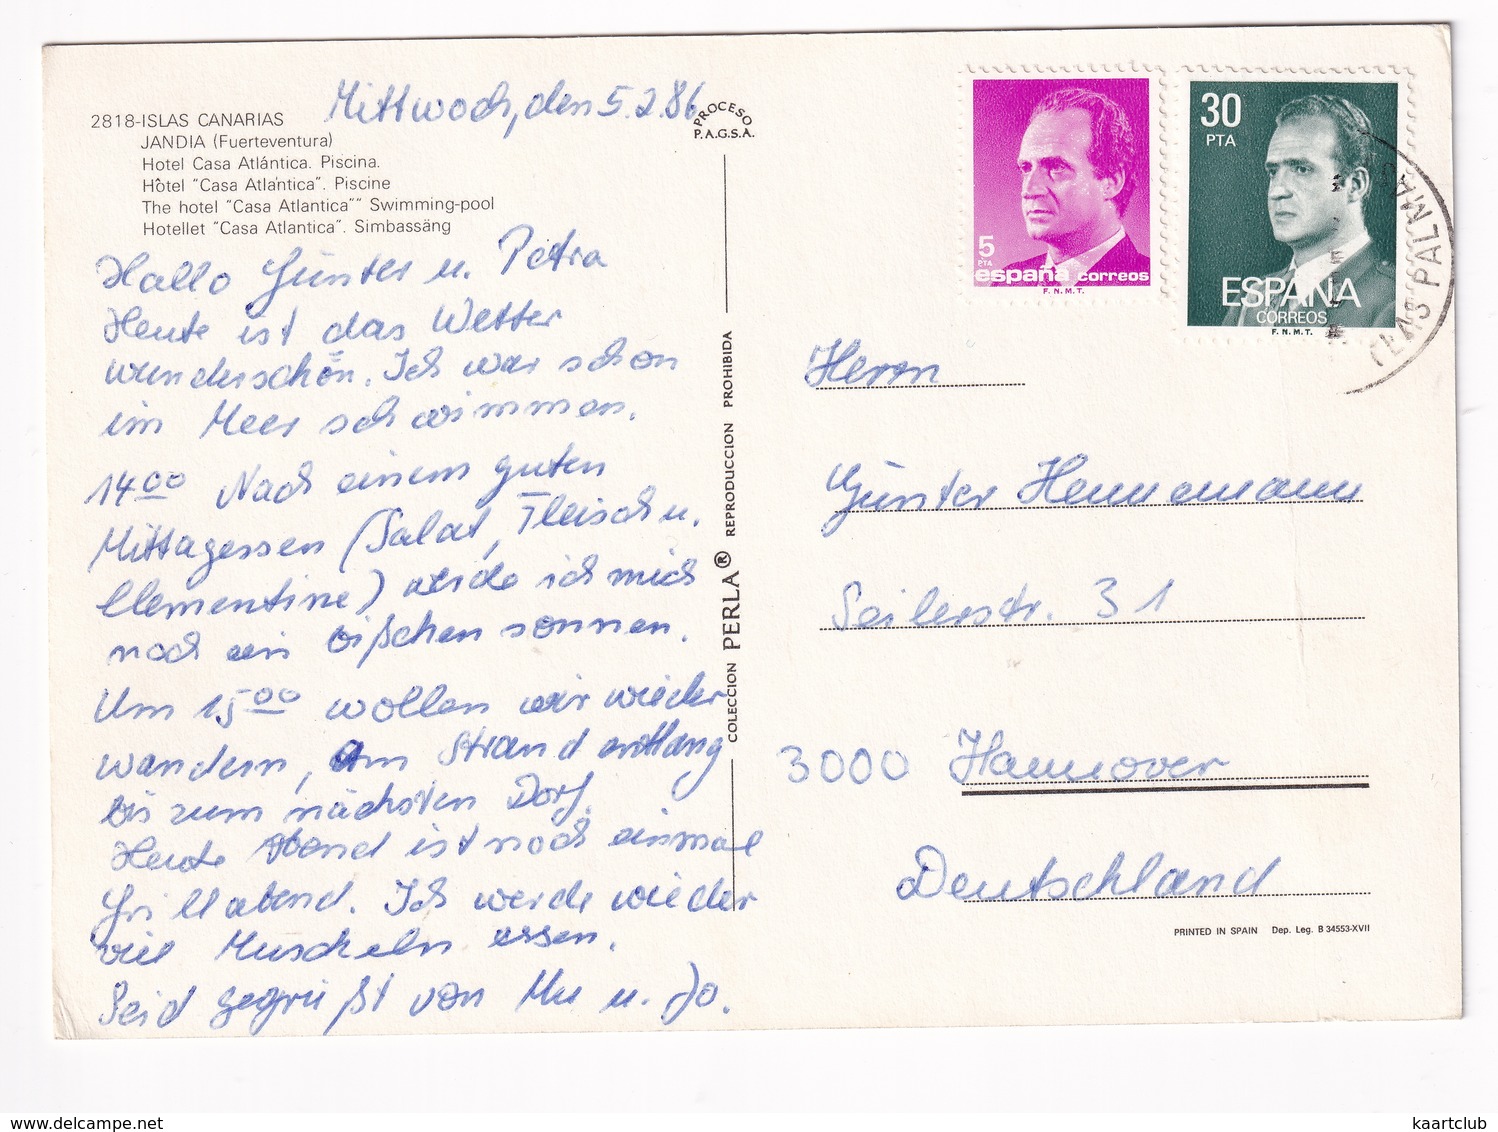 Mittwoch, den 5.2.86
2818-ISLAS CANARIAS
JANDIA (Fuerteventura)
Hotel Casa Atlántica. Piscina.
Hôtel "Casa Atlántica". Piscine
The hotel "Casa Atlantica"" Swimming-pool
Hotellet "Casa Atlantica". Simbassäng
Hallo Günter u. Petra
Heute ist das Wetter
wunderschön. Ich war schon
im Meer schwimmen.
14 00 Nach einem guten
Mittagessen (Salat, Fleisch u.
Clementine) werde ich mich
noch ein bißchen sonnen.
Um 15 00 wollen wir wieder
wandern, am Strand entlang
bis zum nächsten Dorf.
Heute Abend ist noch einmal
Grillabend. Ich werde wieder
viel Muscheln essen.
Seid gegrüßt von Mu u. Jo.
PROCESO
P.A.G.S.A.
COLECCION PERLA® REPRODUCCION PROHIBIDA
5
PTA
españa correos
F.N.M.T.
30
PTA
ESPAÑA
CORREOS
F.N.M.T.
(LAS PALMAS
Herrn
Günter Hennemann
Seilerstr. 31
3000 Hannover
Deutschland
PRINTED IN SPAIN Dep. Leg. B 34553-XVII
https://www.delcampe.net
kaartclub